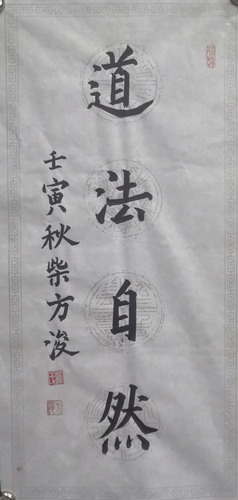 道法自然
壬寅秋柴方浚